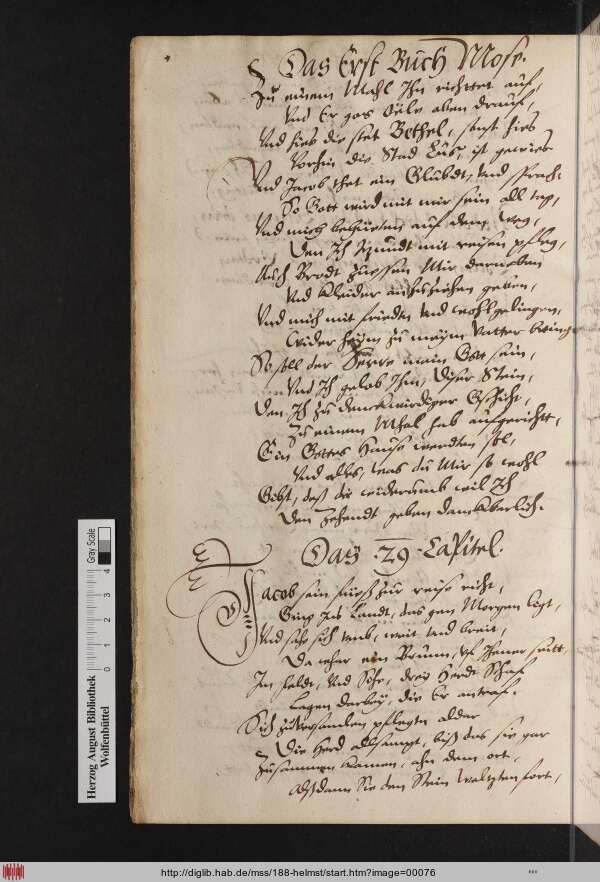 Das Erst Buch Mose.
Zu einem Mahl Ihn richttet auf,
Vnd Er gos Oele oben drauf,
Vnd hies die stet Bethel, sonst hies
Vorhin die Stad Lus, ist gewies
Vnd Jacob thet ein Glübdt, Vnd sprach:
So Gott wird mit mir sein all tag,
Vnd mich behütten auf dem Weg,
Den Ich Itzundt mit reisen pfleg,
Auch Brodt zuessen Mir darneben
Vnd Kleider anzuziehen geben,
Vnd mich mit frieden Vnd wohlgelingen,
Wider heym zu meym Vatter bring
So soll der Herre mein Gott sein,
Vnd Ich gelob Ihm, diser Stein,
Den Ich zu denckwirdiger Gschicht,
Zu einem Mhal hab aufgerichtt,
Ein Gottes Hause werdten sol,
Vnd alles, was du Mir so wohl
Gibst, deß dir widerumb wil Ich
Den Zehendt geben danckberlich.
Das 29 Capitel.
Jacob sein füeß zur reise richt,
Ging Ins Landt, das gen Morgen ligt,
Vnd sahe sich vmb, weit vnd breit,
Da wahr ein Brunn, vf Jhener seitt,
Im feldt, Vnd Sihe, drey Herdt Schaf
Lagen darbey, die Er antraf.
Sich zuversamlen pflegten aldar
Die Herd allsampt, biß das sie gar
Zusammen kamen, ahn dem ort,
Alßdann Sie den Stein weltzten fort,
Herzog August Bibliothek
Wolfenbüttel
0 1 2 3 4
Gray Scale
http://diglib.hab.de/mss/188-helmst/start.htm?image=00076